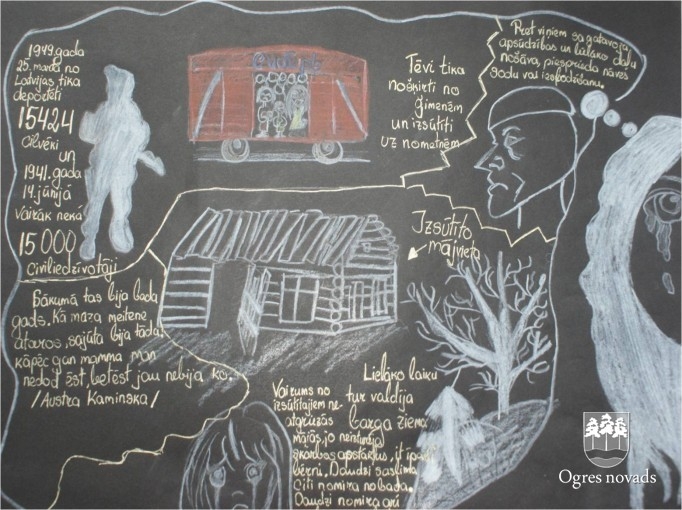 1949.gada
25. martā no
Latvijas tika
deportēti
15424
cilvēki
un
1941.gada
14. jūnijā
Vairāk nekā
15 000
Civiliedzīvotāji
Tēvi tika
nošķirti no
ģimenēm
un izsūtīti
uz nometnēm
Pret viņiem sagatavoja
apsūdzības un lielāko daļu
nošāva, piesprieda nāves
sodu vai
Izsūtīto
mājvieta
Sākumā tas bija bada
gads. Kā maza meitene
atceros, sajūta bija tāda,
kāpēc gan mamma man
nedod ēst, bet ēst jau nebija ko.
/Austra Kaminska/
Vairums no
izsūtītajiem ne-
atgriezās
mājās, jo neizturēja
skarbos apstākļus, it īpaši
bērni. Daudzi saslima
Citi nomira no bada.
Daudzi nomira arī
Lielāko laiku
tur valdīja
barga ziema
Ogres novads